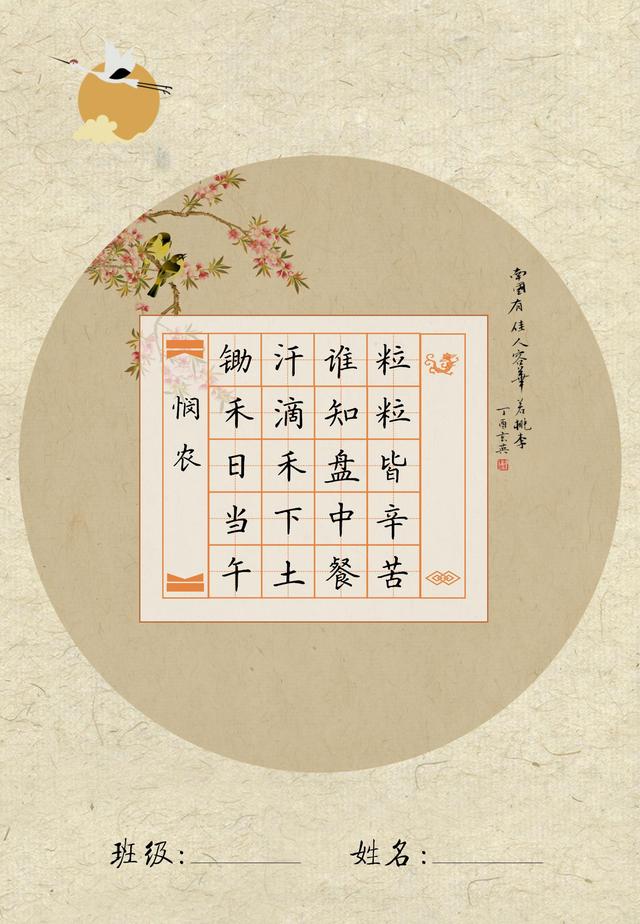 悯农
锄禾日当午
汗滴禾下土
谁知盘中餐
粒粒皆辛苦
南国有佳人容华若桃李
丁酉玄英
班级：
姓名：